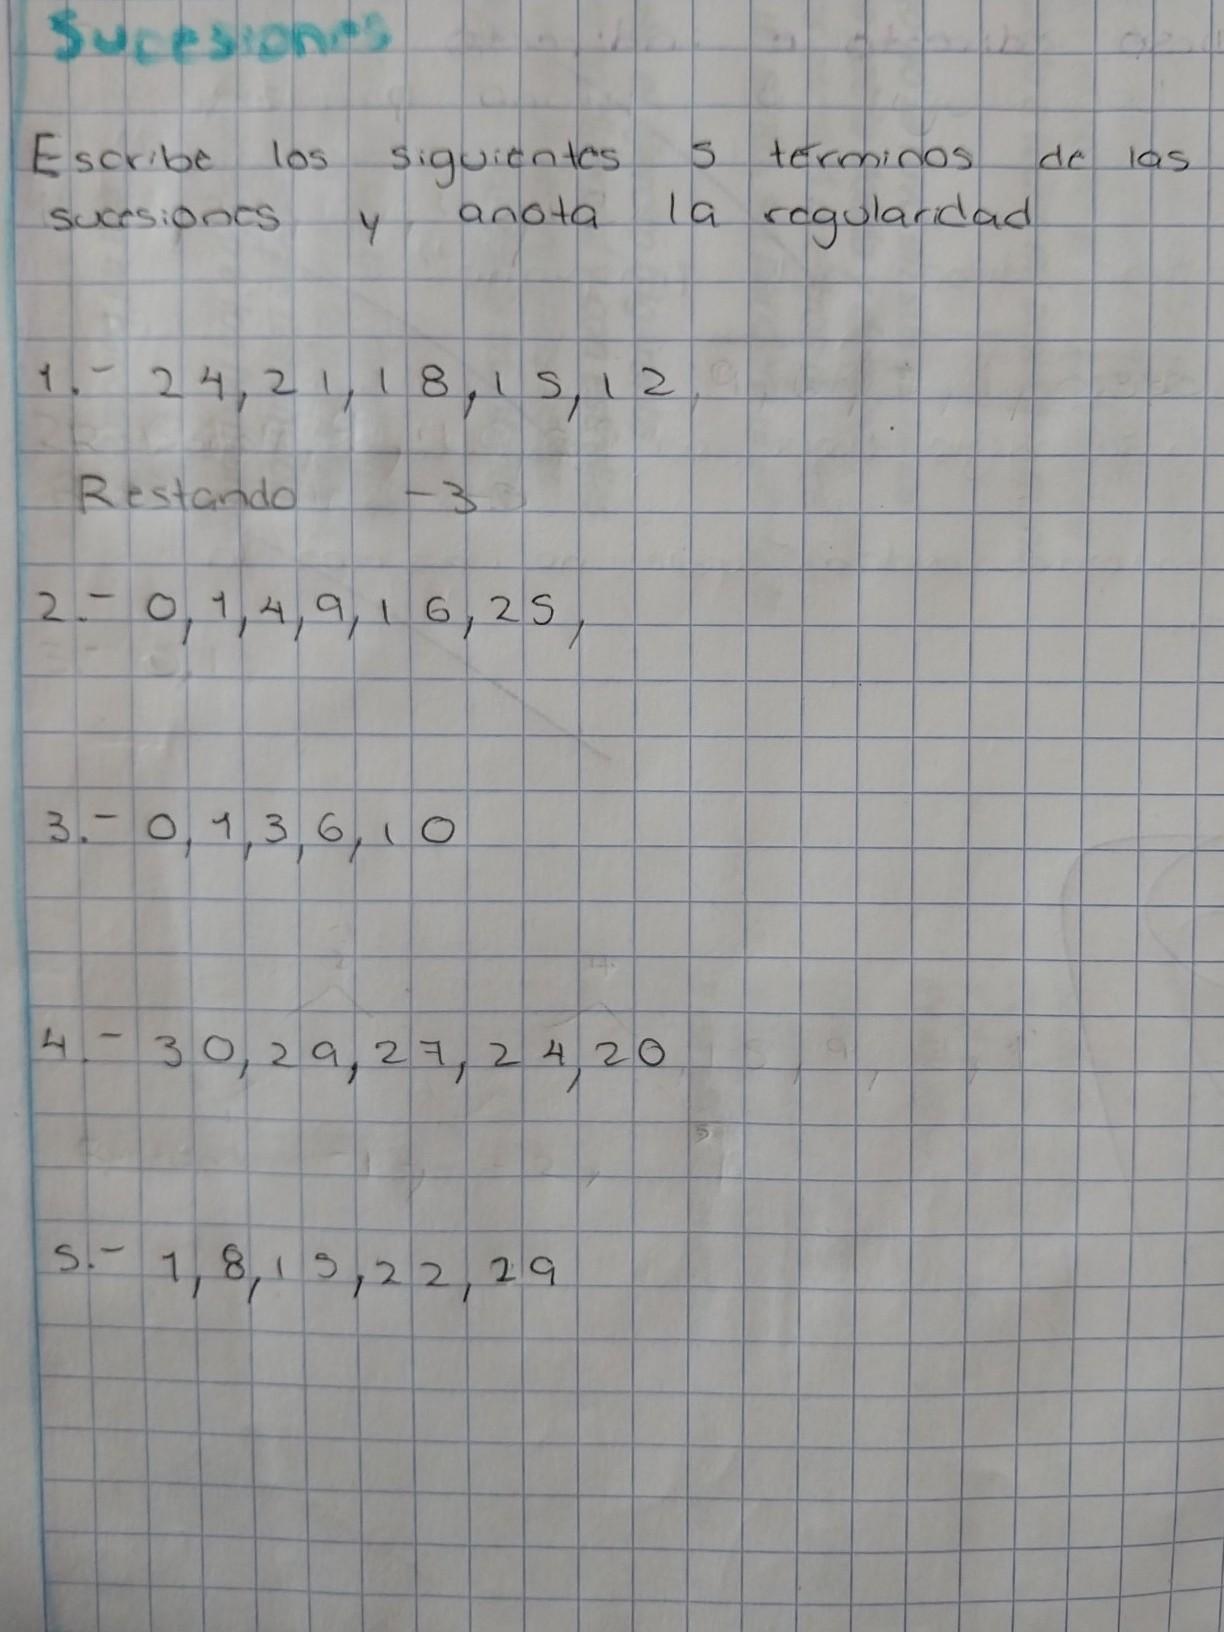 Sucesiones
Escribe los siguientes 5 términos de las
sucesiones y anota la regularidad
1.- 24, 21, 18, 15, 12
Restando -3
2.- 0, 1, 4, 9, 16, 25,
3.- 0, 1, 3, 6, 10
4.- 30, 29, 27, 24, 20
5.- 1, 8, 15, 22, 29